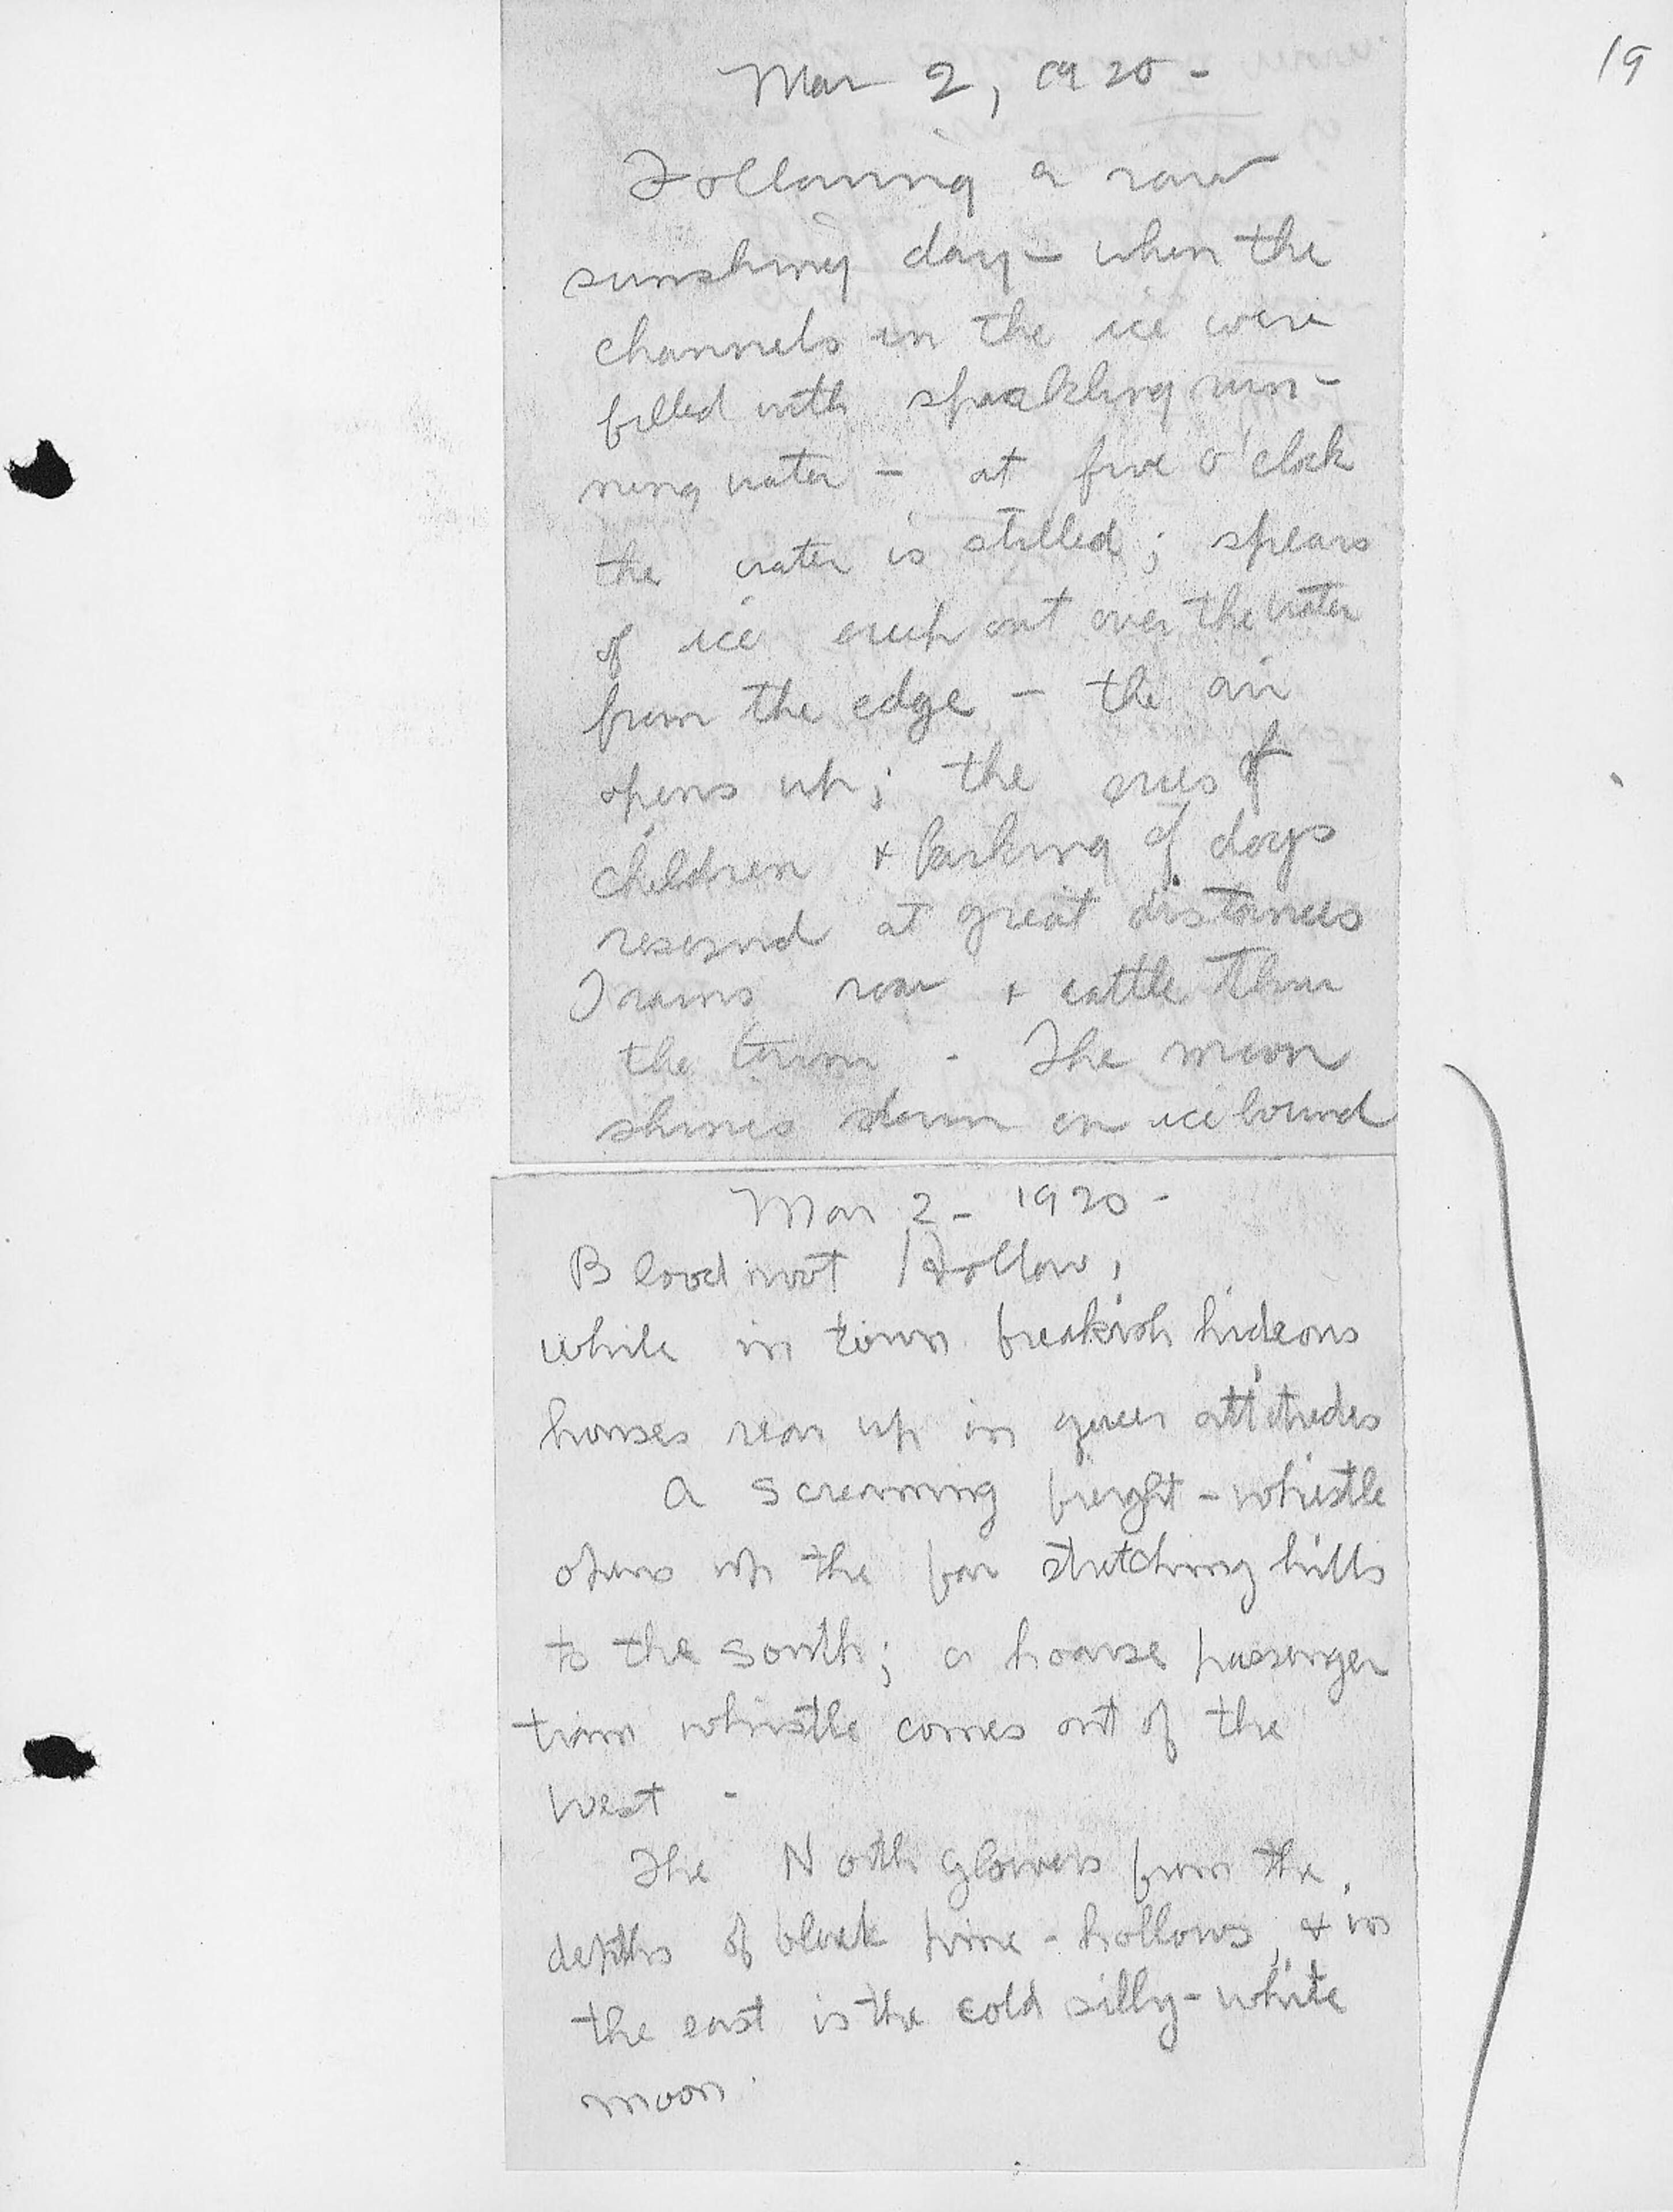 19
Mar 2, 1920 -
Following a raw
sunshiny day - when the
channels in the ice were
filled with sparkling run-
ning water - at five o'clock
the water is stilled; spears
of ice creep out over the water
from the edge - the air
opens up; the cries of
children + barking of dogs
resound at great distances
Trains roar + rattle thru
the town - The moon
shines down on ice bound
Mar 2 - 1920 -
Bloodroot Hollow,
while in town freakish hideous
houses rear up in queer attitudes
A screaming freight-whistle
opens up the far stretching hills
to the south; a hoarse passenger
train whistle comes out of the
West -
The North glowers from the
depths of black pine-hollows, + in
the east is the cold silly-white
moon.